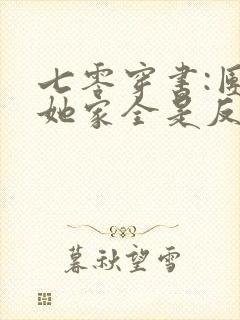 七零穿书:团
她家全是反
暮秋望雪